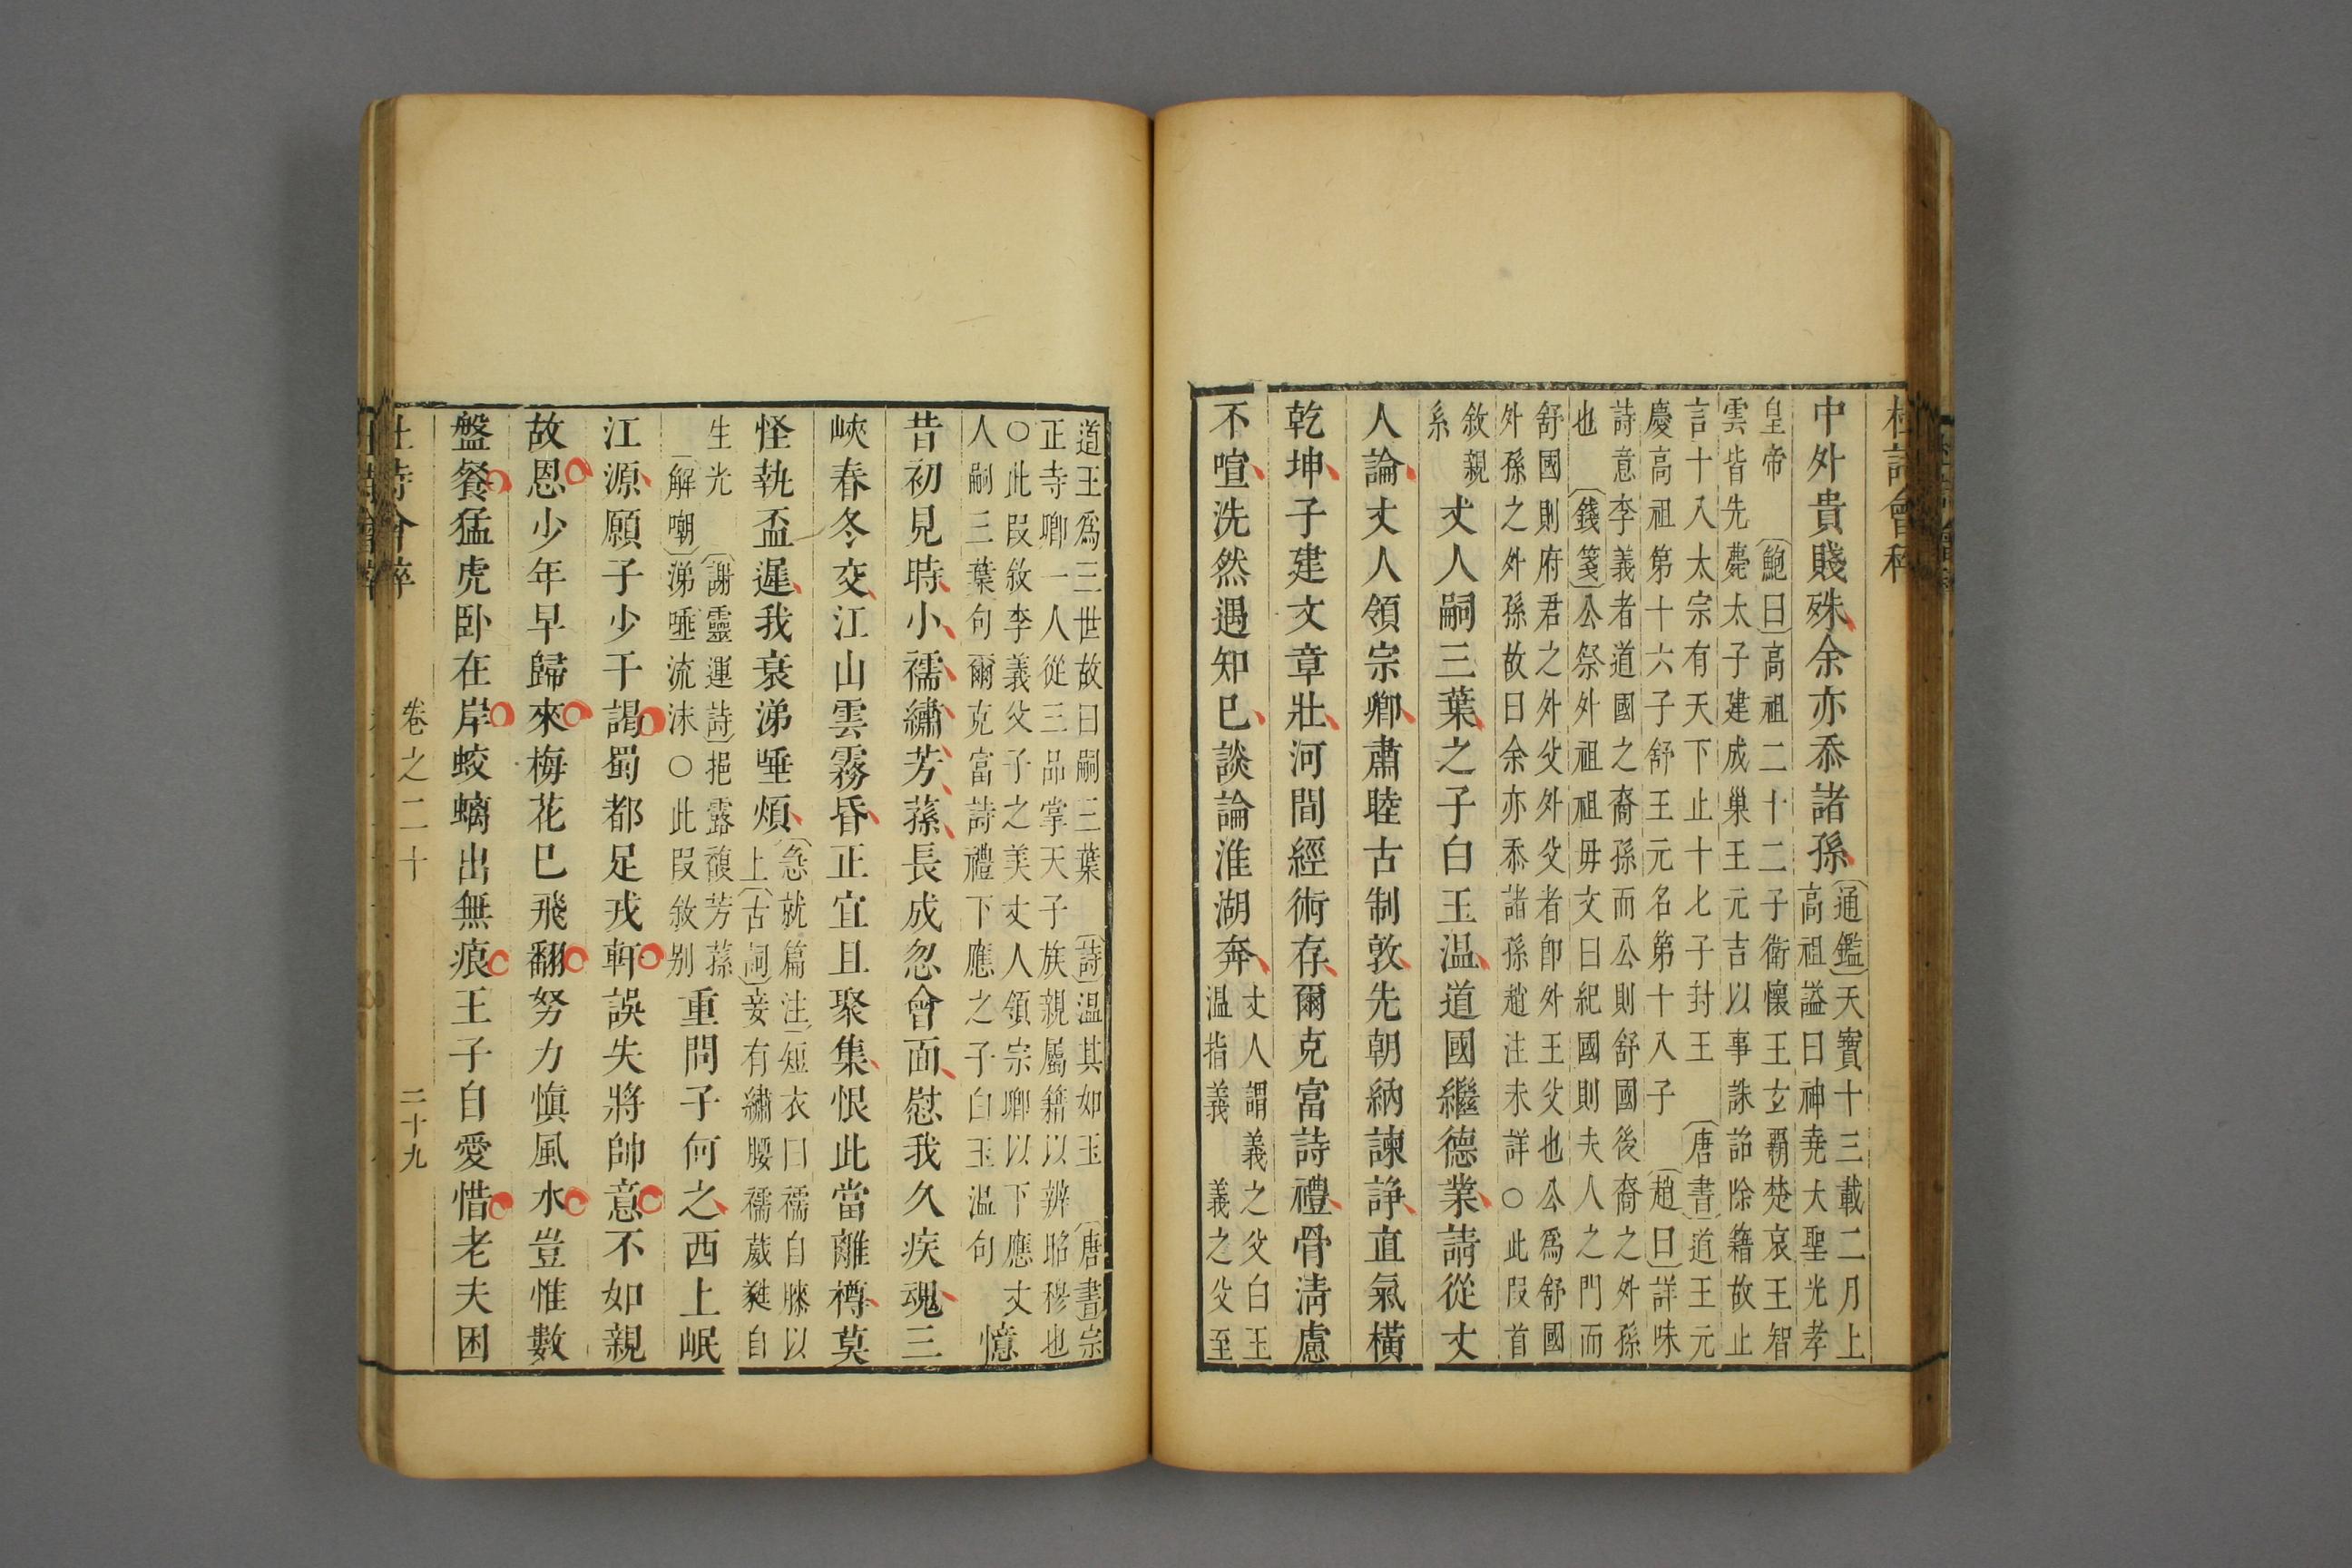 杜詩會稡
中外貴賤殊余亦忝諸孫
通鑑天寶十三載二月上
高祖謚曰神堯大聖光孝
皇帝 鮑曰高祖二十二子衛懷王玄霸楚哀王智
雲皆先薨太子建成巢王元吉以事誅詔除籍故止
言十八太宗有天下止十七子封王 唐書道王元
慶高祖第十六子舒王元名第十八子 趙曰詳味
詩意李義者道國之裔孫而公則舒國後裔之外孫
也 錢箋公祭外祖祖母文曰紀國則夫人之門而
舒國則府君之外父外父者卽外王父也公爲舒國
外孫之外孫故曰余亦忝諸孫趙注未詳○此叚首
敘親
系
丈人嗣三葉之子白玉温道國繼德業請從丈
人論丈人領宗卿肅睦古制敦先朝納諫諍直氣橫
乾坤子建文章壯河間經術存爾克富詩禮骨淸慮
不喧洗然遇知已談論淮湖奔
丈人謂義之父白玉
温指義 義之父至
道王爲三世故曰嗣三葉 詩温其如玉 唐書宗
正寺卿一人從三品掌天子族親屬籍以辨昭穆也
○此叚敘李義父子之美丈人領宗卿以下應丈
人嗣三葉句爾克富詩禮下應之子白玉温句
憶
昔初見時小襦繡芳蓀長成忽會面慰我久疾魂三
峽春冬交江山雲霧昏正宜且聚集恨此當離樽莫
怪執盃遲我衰涕唾煩
急就篇注短衣曰襦自膝以
上古詞妾有繡腰襦葳蕤自
生光 謝靈運詩挹露馥芳蓀
解嘲涕唾流沫○此叚敘别
重問子何之西上岷
江源願子少干謁蜀都足戎軒誤失將帥意不如親
故恩少年早歸來梅花已飛翻努力愼風水豈惟數
盤餐猛虎卧在岸蛟螭出無痕王子自愛惜老夫困
杜詩會稡 卷之二十 二十九